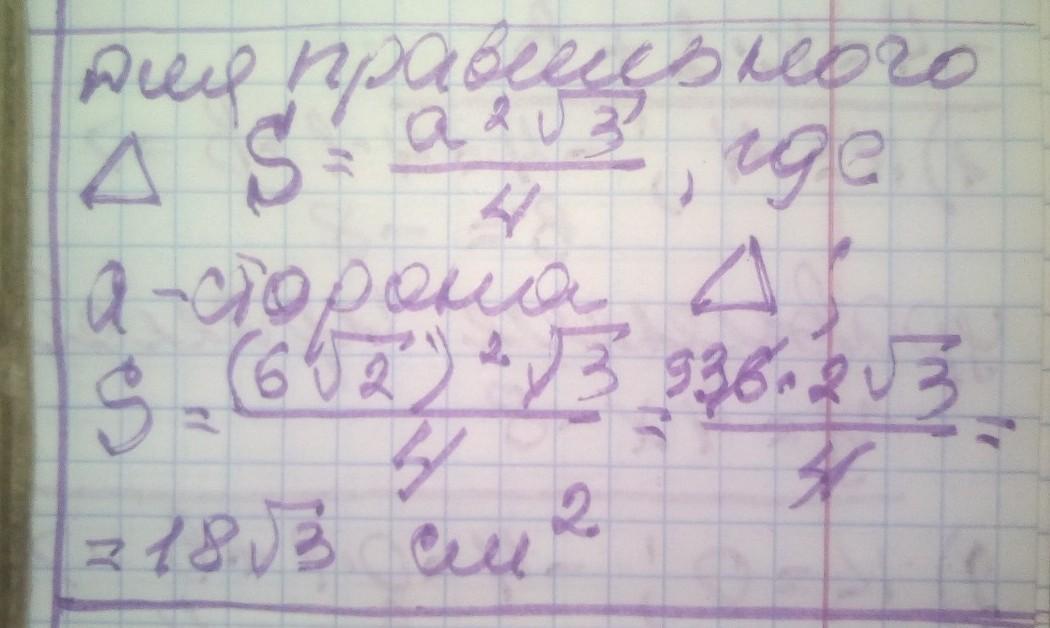 для правильного
Δ S = a²√3/4, где
a - сторона Δ;
S = (6√2)²√3/4 = ⁹36·2√3/4 =
= 18√3 см²